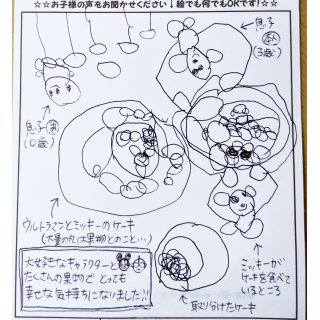 ☆☆お子様の声をお聞かせください↓絵でも何でもOKです!☆☆
息子(本人)
(3歳)
息子(弟)
(0歳)
ウルトラマンとミッキーのケーキ
(大量の丸は果物とのこと…)
ミッキーが
ケーキを食べて
いるところ
大好きなキャラクターと
たくさんの果物で とっても
幸せな気持ちになりました!!
取り分けたケーキ